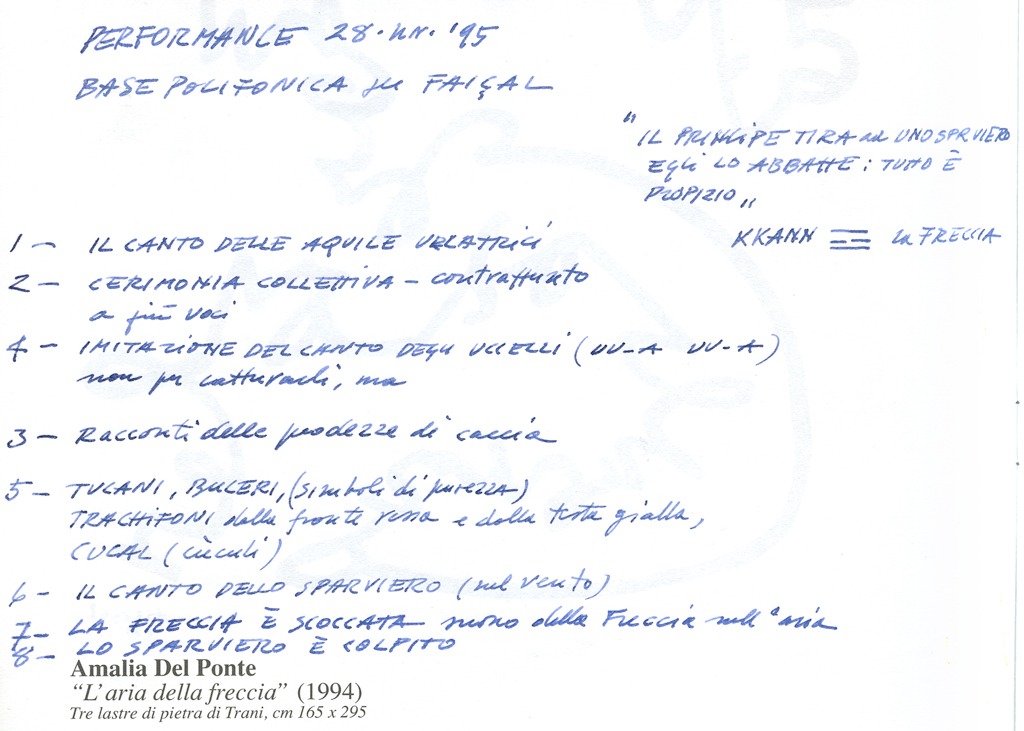 PERFORMANCE 28. '95
BASE POLIFONICA su FAIÇAL
"
IL PRINCIPE TIRA ad UNO SPARVIERO
Egli LO ABBATTE : TUTTO È
PROPIZIO "
KKANN ☵ la FRECCIA
1 - IL CANTO DELLE AQUILE URLATRICI
2 - CERIMONIA COLLETTIVA - contrappunto
a più voci
4 - IMITAZIONE DEL CANTO DEGLI UCCELLI (UU-A UU-A)
non per catturarli, ma
3 - Racconti delle prodezze di caccia
5 - TUCANI, BUCERI, (simboli di purezza)
TRACHIFONI dalla fronte rossa e dalla testa gialla,
CUCAL (cuculi)
6 - IL CANTO DELLO SPARVIERO (nel vento)
7 - LA FRECCIA È SCOCCATA suono della Freccia nell'aria
8 - LO SPARVIERO È COLPITO
Amalia Del Ponte
"L'aria della freccia" (1994)
Tre lastre di pietra di Trani, cm 165 x 295